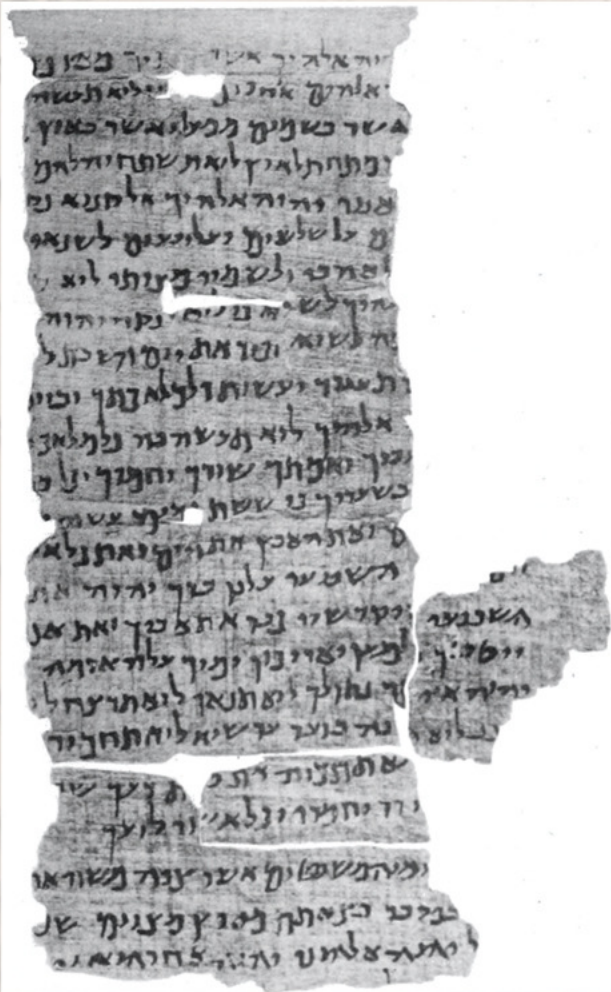 יהוה אלהיך אשר
אלהים אחרים לוא תעשה
אשר בשמים ממעל ואשר בארץ
מתחת לארץ לוא תשתחוה להם
אנכי יהוה אלהיך אל קנוא פק
ם על שלשים ועל רבעים לשנאי
לאהבי ולשמרי מצותי לוא ת
להיך לשוא כי לוא ינקה יהוה
ה לשוא זכור את יום השבת ל
ם תעבוד ועשית כל מלאכתך וביום
אלהיך לוא תעשה בה כל מלאכה
עבדך ואמתך שורך וחמרך וכל ב
בשעריך כי ששת ימים עשה
ם ואת הארץ את הים ואת כל א
השביעי על כן ברך יהוה את
השביעי ויקדשיו כבד את אביך ואת אמ
ייטב לך ולמען יאריכון ימיך על האדמה
יהוה אלהיך נתן לך לוא תנאף לוא תרצח לו
נב לוא נה ברעך עד שוא לוא תחמוד
א תתאוה את ב ת רעך שד
ורו וחמרו וכל אשר לרעך
ים והמשפטים אשר צוה משה את
במדבר בצאתם מארץ מצרים שמ
ל יהוה אלהינו יהוה אחד הוא וא